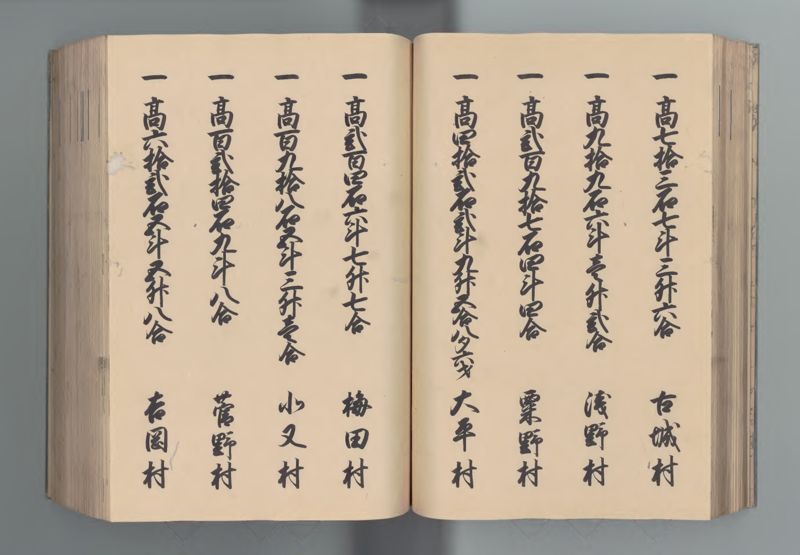 一 高七拾三石七斗三升六合 古城村
一 高九拾九石六斗壱升弐合 浅野村
一 高弐百九拾七石四斗四合 粟野村
一 高四拾弐石弐斗九升五合八夕六才 大平村
一 高弐百四石六斗七升七合 梅田村
一 高百九拾八石五斗三升壱合 小又村
一 高百弐拾四石九斗八合 菅野村
一 高六拾弐石五斗五升八合 吉岡村